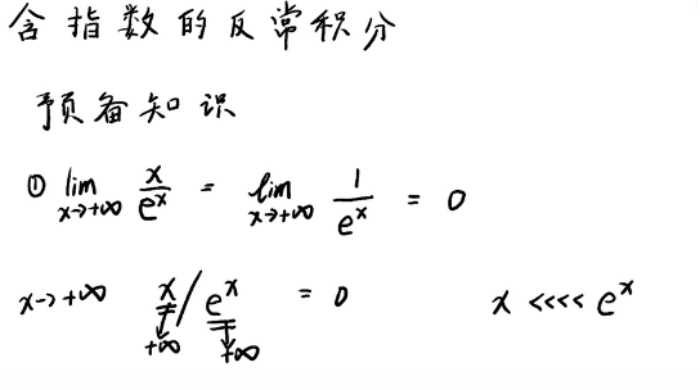 含指数的反常积分
预备知识
① lim x→+∞ x/e^x = lim x→+∞ 1/e^x = 0
x→+∞ x/e^x = 0 x <<<< e^x
+∞ +∞